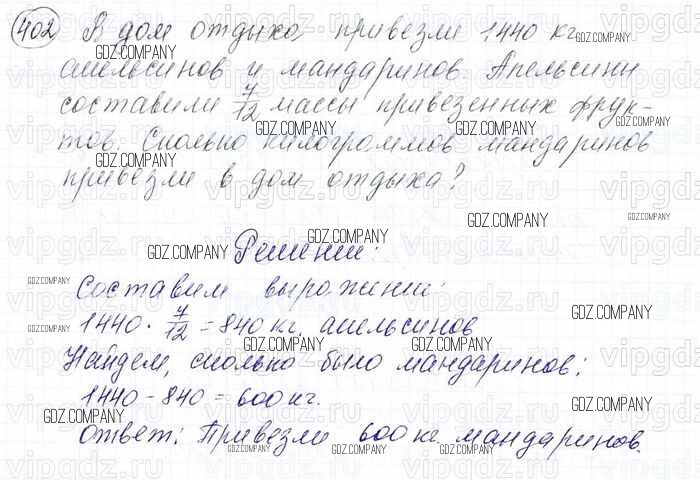 402 В дом отдыха привезли 1440 кг
апельсинов и мандаринов. Апельсины
составили 7/12 массы привезенных фрук-
тов. Сколько килограммов мандаринов
привезли в дом отдыха?
Решение:
Составим выражение:
1440 · 7/12 = 840 кг. апельсинов
Найдем, сколько было мандаринов:
1440 - 840 = 600 кг.
Ответ: Привезли 600 кг. мандаринов.
GDZ.COMPANY
vipgdz.ru